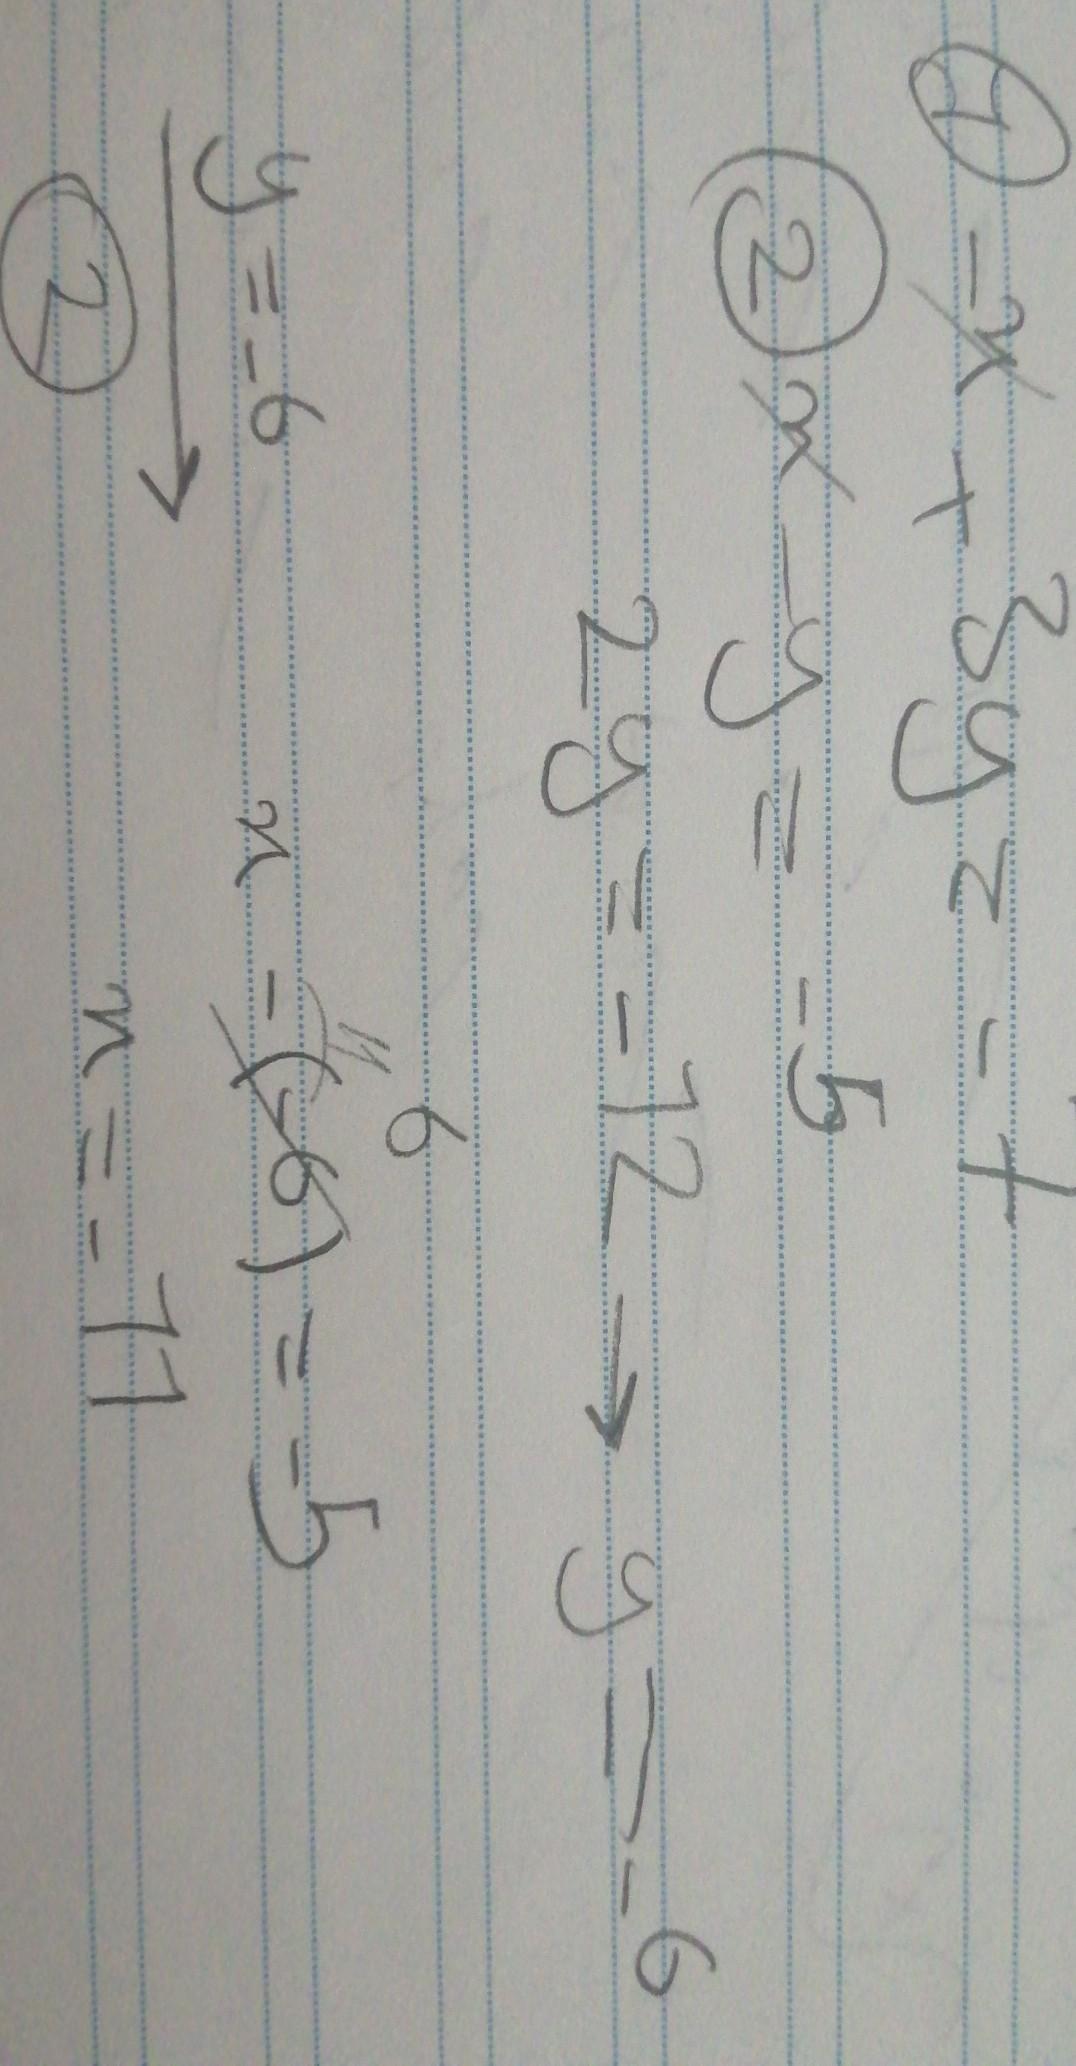 ① -x + 3y = -7
② x - y = -5
2y = -12 → y = -6
6
y = -6 x - (-6) = -5
② x = -11